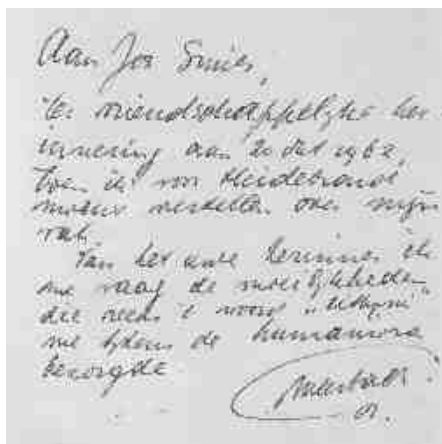 Aan Jos Smies,
ter vriendschappelijke her
innering aan 20 okt 1962,
toen ik voor Heidebrand
mocht vertellen over mijn
vak
Van het andere herinner ik
me vaag de moeilijkheden
die reeds 't woord „
me tijdens de humaniora
bezorgde